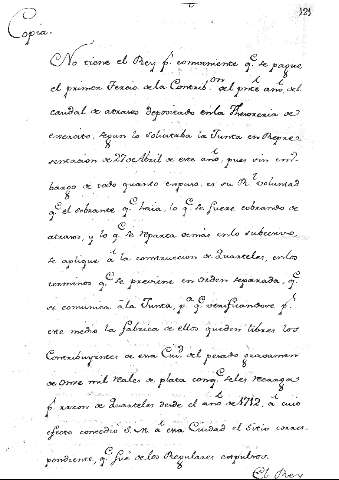 Copia.
No tiene el Rey pr. combeniente qe. se pague
el primer Tercio de la Contribon. del pnte. año, del
caudal de atrasos depositado en la Thesoreria de
exercito, segun lo solicitaba la Junta en Repre
sentacion de 27 de Abril de este año, pues sin em
bargo de todo quanto expuso, es su Rl. voluntad
qe. el sobrante qe. haia, lo qe. se fuere cobrando de
atrasos, y lo qe. se reparta demas en lo subcesivo,
se aplique á la construccion de Quarteles, en los
terminos qe. se previene en orden separada, qe.
se comunica á la Junta, pa. qe. verificandose pr.
este medio la fabrica de ellos queden libres los
Contribuyentes de esa Ciud. del pesado gravamen
de once mil Reales de plata con qe. se les recarga
pr. razon de Quarteles desde el año de 1712, á cuio
efecto concedió S. M. á esa Ciudad el Sitio corres
pondiente, qe. fué de los Regulares expulsos.
El Rey